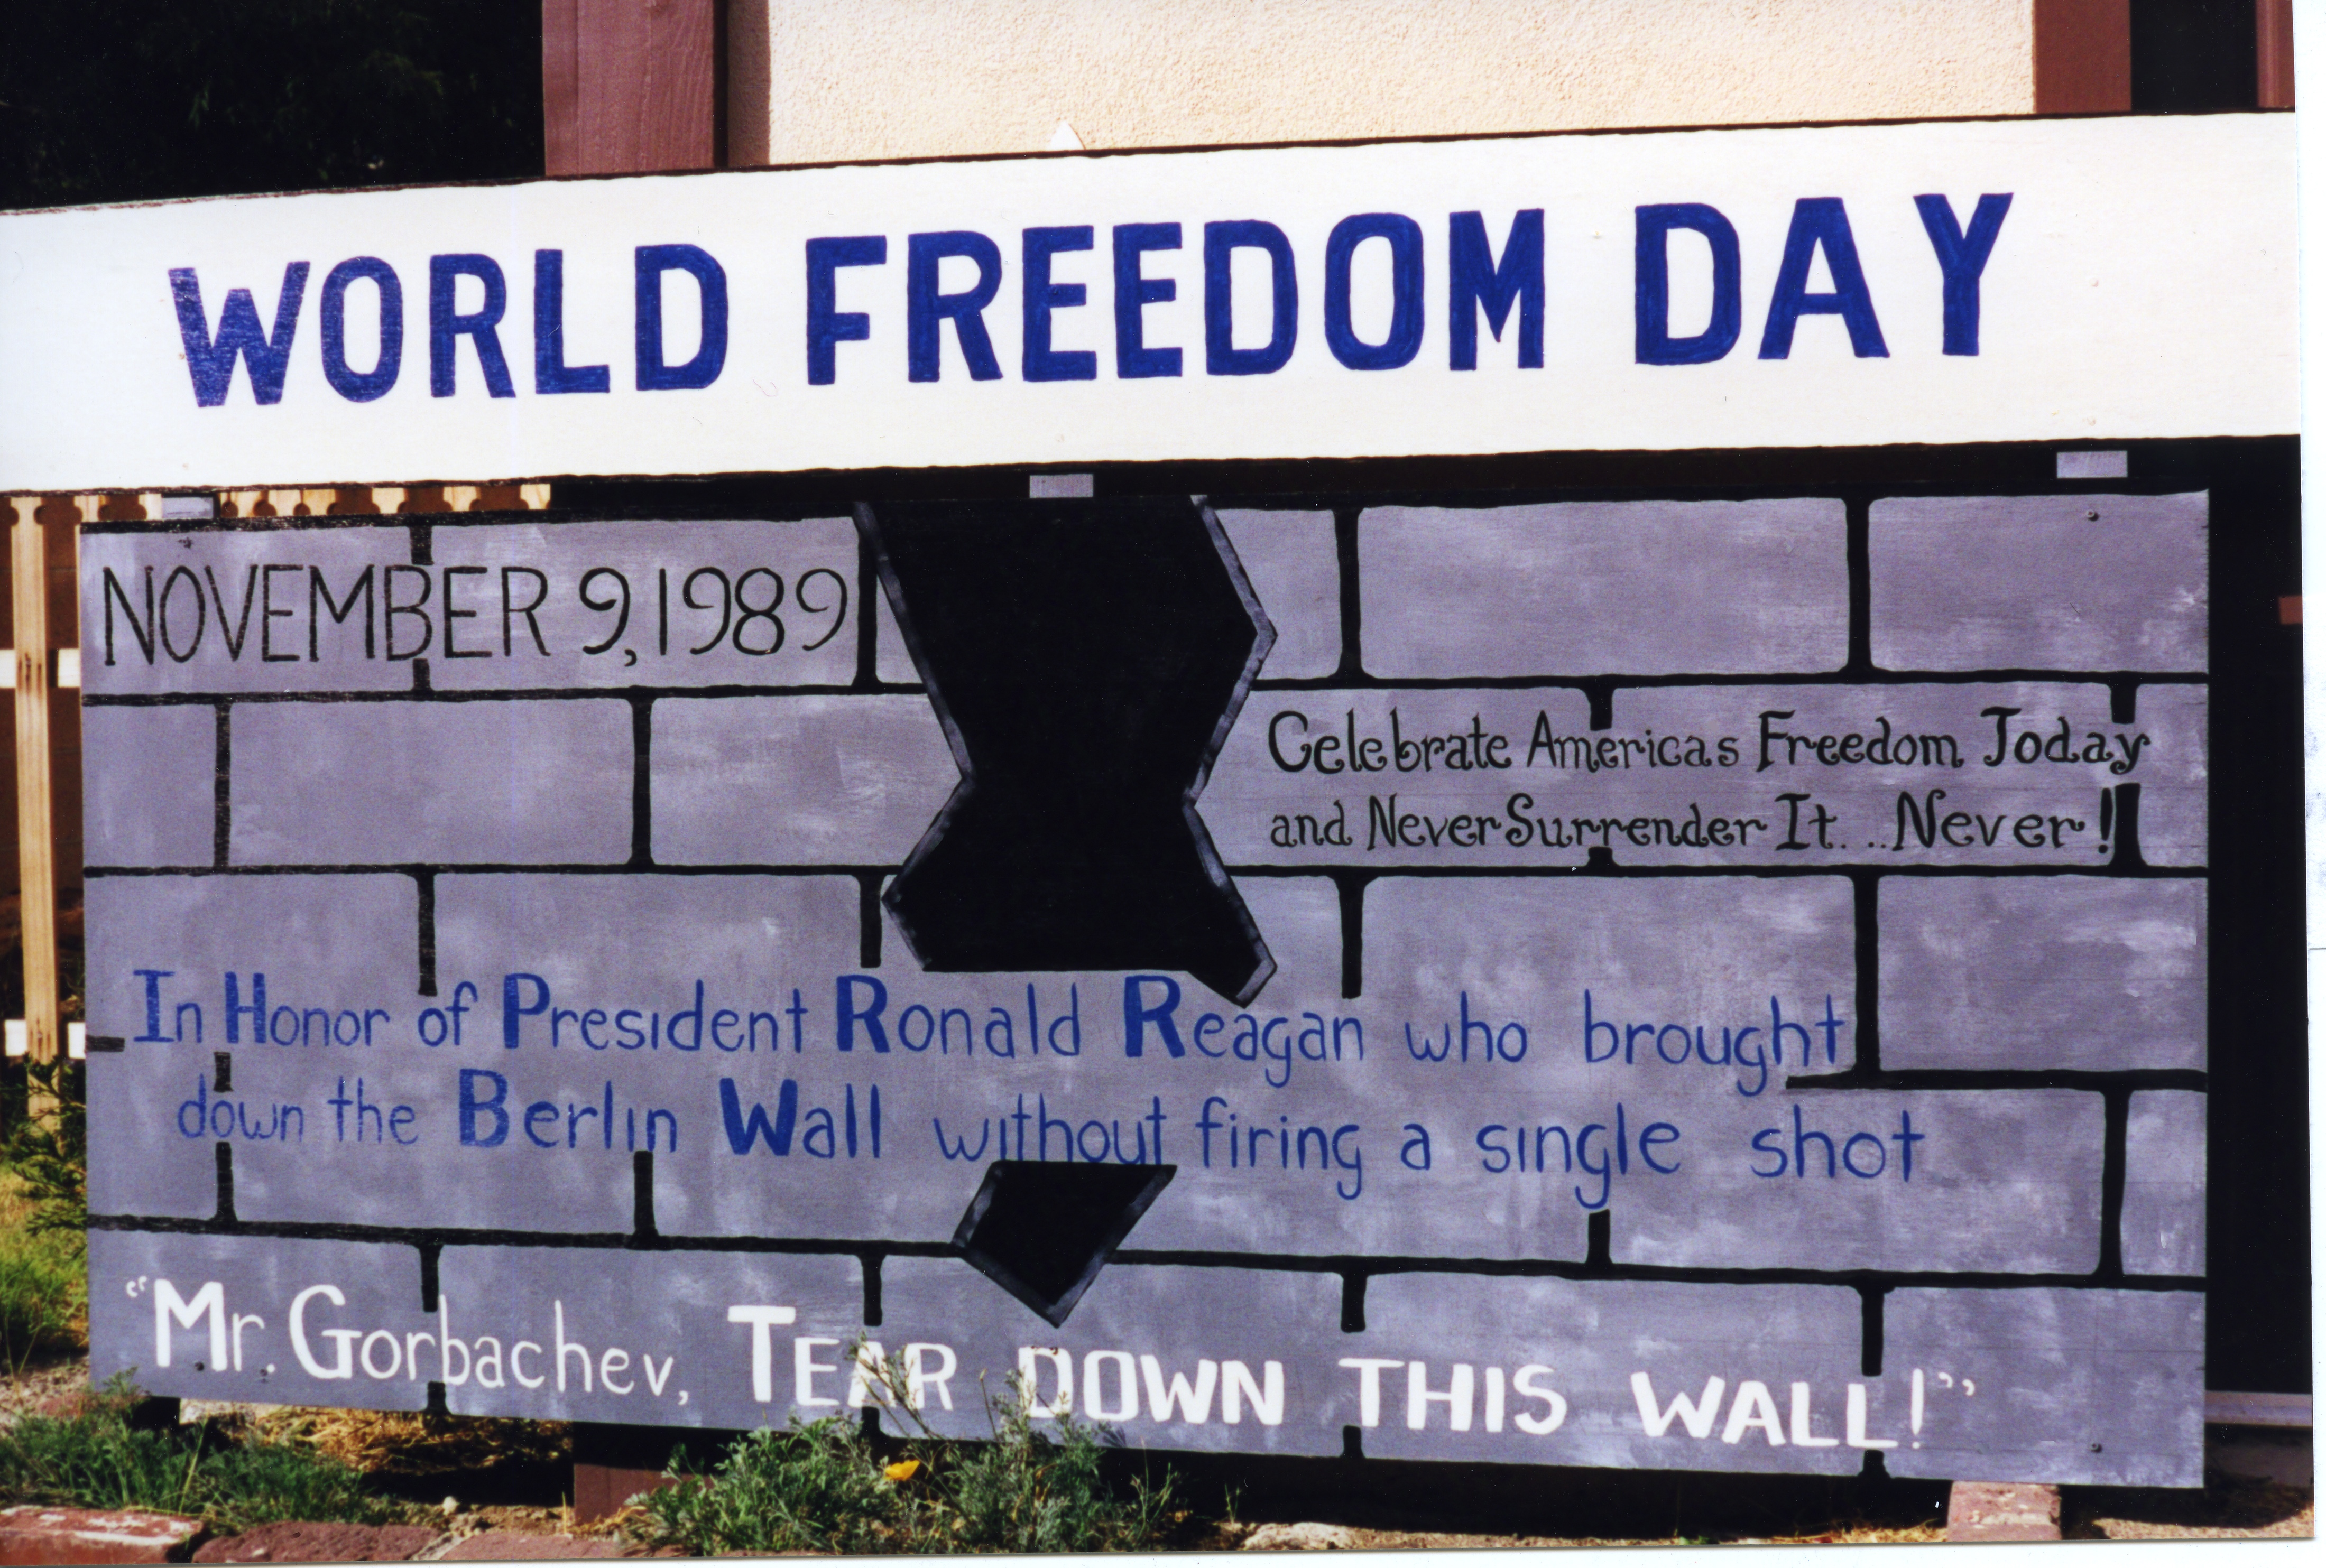 WORLD FREEDOM DAY
NOVEMBER 9, 1989
Celebrate Americas Freedom Today
and Never Surrender It. . . Never!
In Honor of President Ronald Reagan who brought
down the Berlin Wall without firing a single shot
"Mr. Gorbachev, TEAR DOWN THIS WALL!"